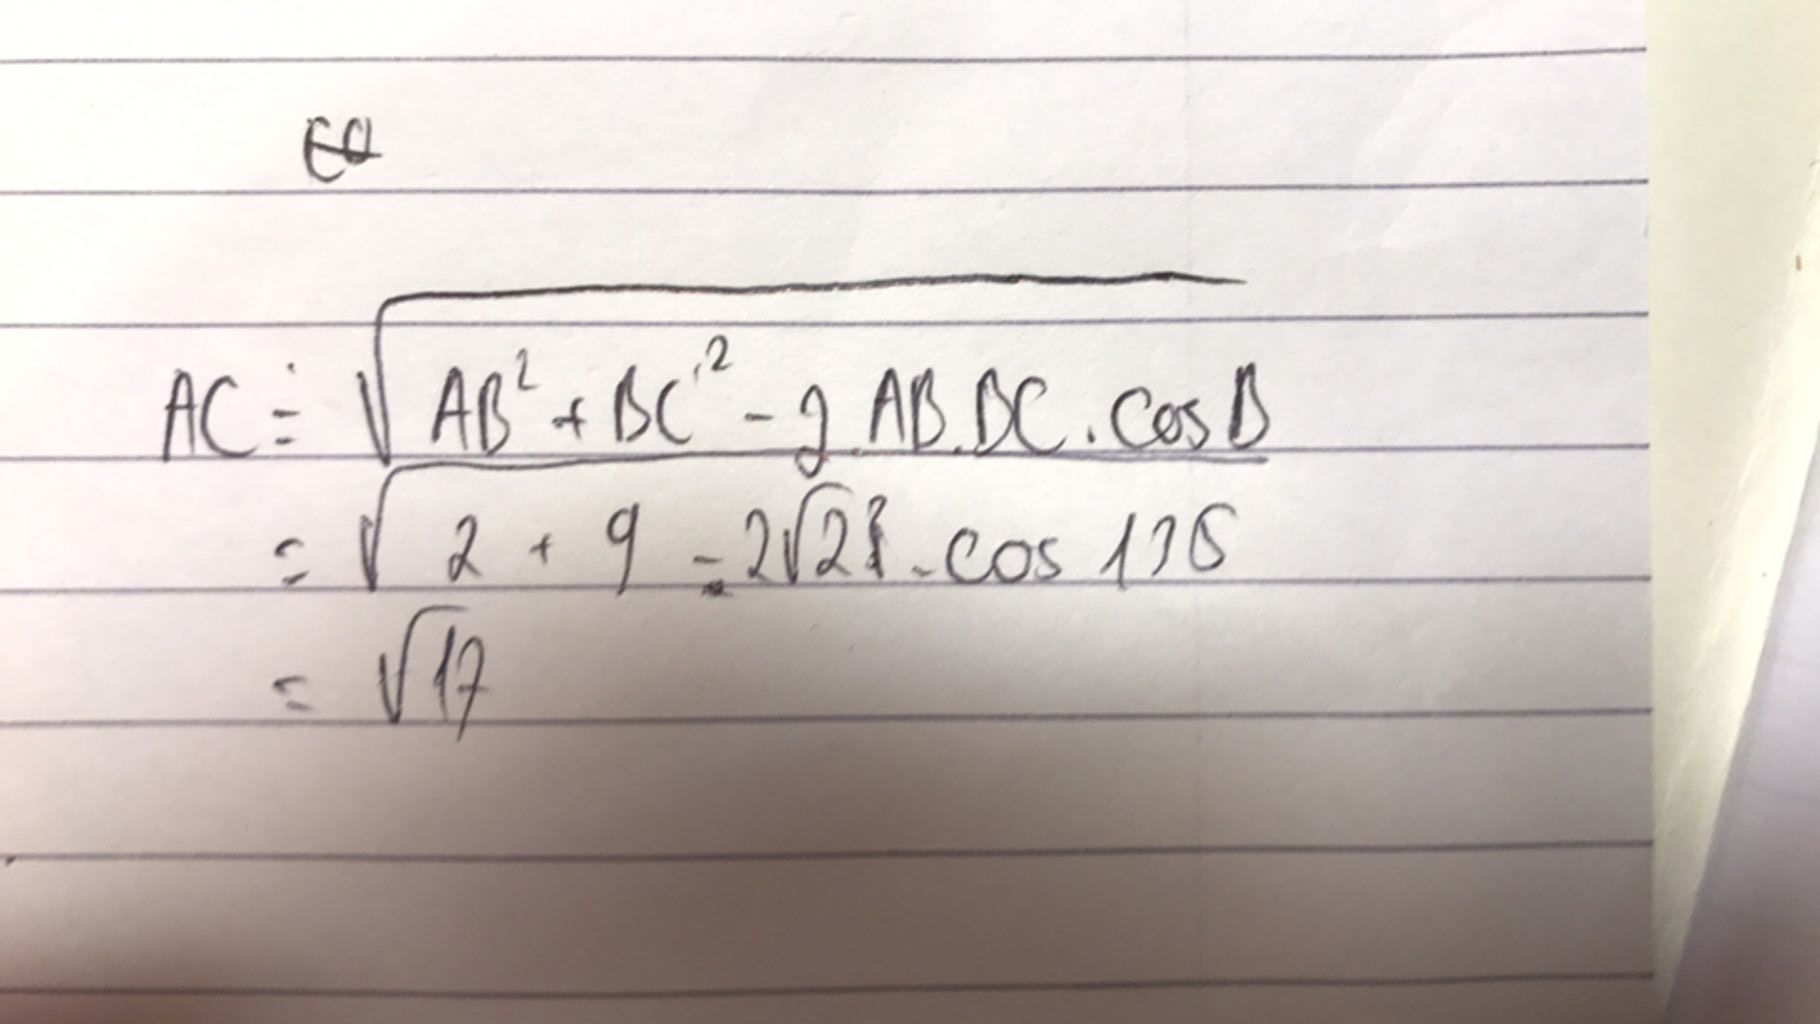 AC = √AB² + BC² - 2 AB.BC. cos B
= √2 + 9 - 2√2 . cos 135
= √17